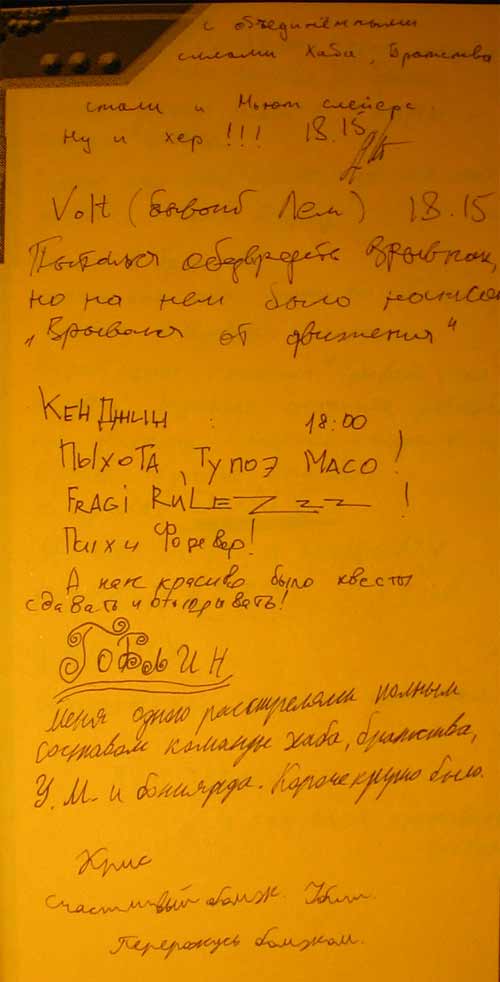 с объединёнными
силами Хаба, Братства
стали и Мьют слейерс.
Ну и хер !!! 18.15
Volt (бывший Лем) 18.15
Пытался обезвредить взрывпак,
но на нем было написа
"Взрывался от движения"
Кен Джиц 18:00
ПЫХОТА, ТУПОЭ МАСО!
FRAGI RULEZzzz !
Пыхи Форевер!
А как красиво было квесты
сдавать и отыгрывать!
ГОБЛИН
Меня одного расстреляли полным
составом команды хаба, братства,
У. М. и бонярда. Короче круто было.
Крис
Счастливый бомж.
Перерожусь бомжом.